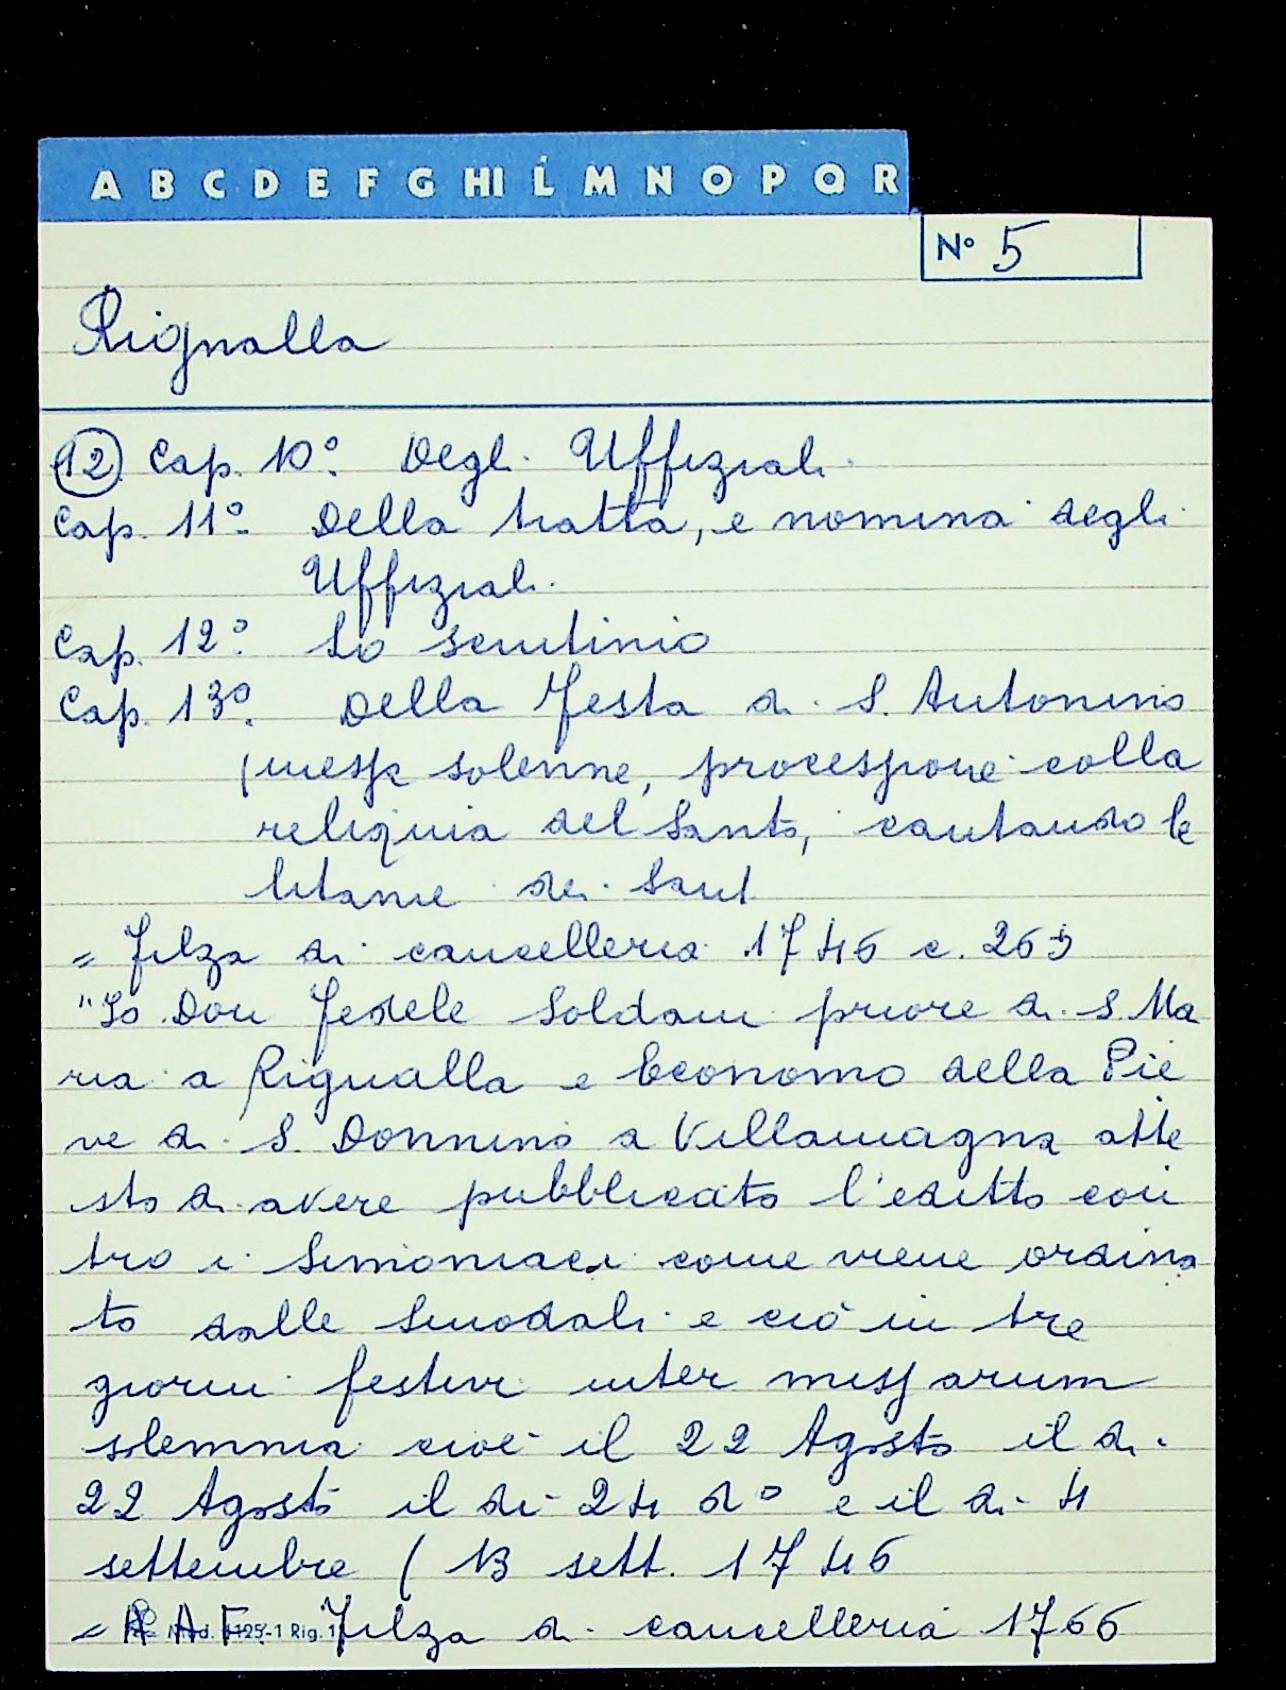 A B C D E F G HI L M N O P Q R
N° 5
Rignalla
12 Cap. 10° Degli Uffiziali
Cap. 11° Della tratta, e nomina degli
Uffiziali.
Cap. 12° Lo scrutinio
Cap. 13° Della Festa di S. Antonino
(messe solenne, processione colla
reliquia del Santo, cantando le
litanie dei Santi
= Filza di cancelleria 1746 c. 265
"Io Don Fedele Soldani priore di S. Ma
ria a Rignalla e Economo della Pie
ve di S. Donnino a Villamagna atte
sto di avere pubblicato l'editto con
tro i Simoniaci come viene ordina
to dalle Sinodali e ciò in tre
giorni festivi inter missarum
solemnia cioè il 22 Agosto il di
22 Agosto il di 24 d° e il di 4
settembre (13 sett. 1746
= A A F. Filza di cancelleria 1766